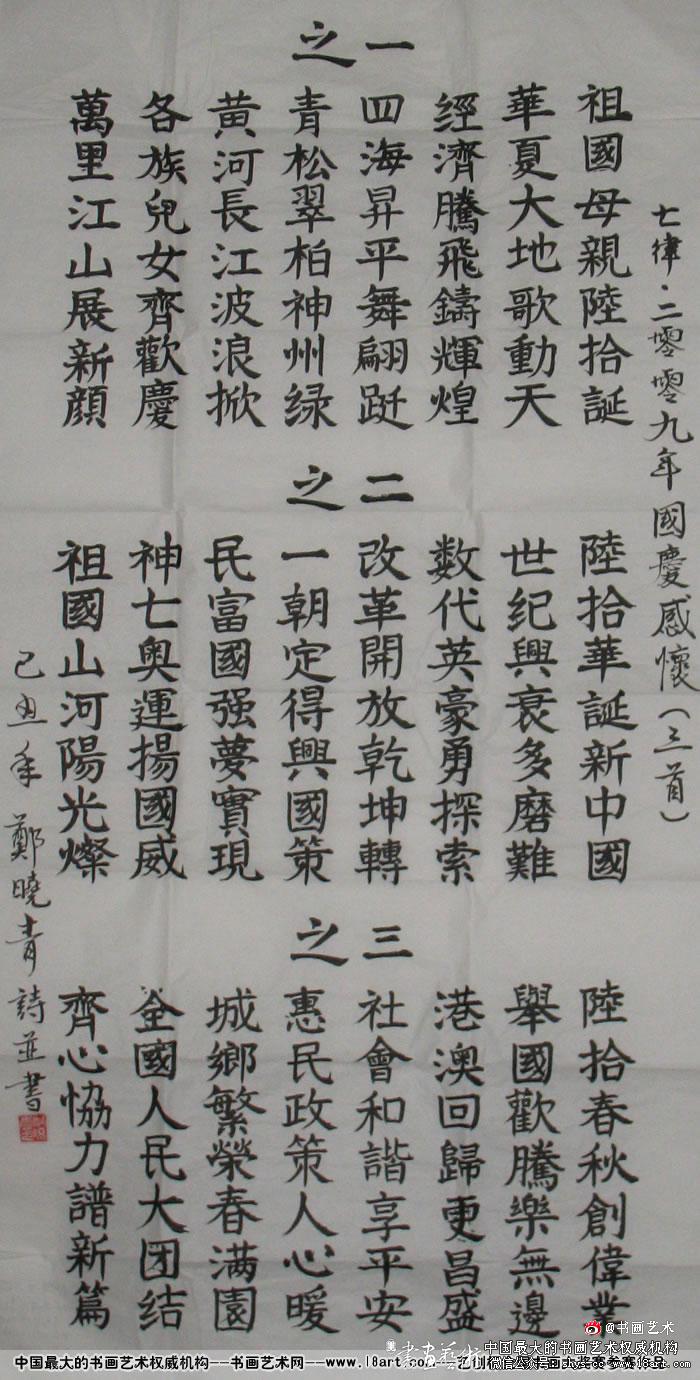 七律·二零零九年國慶感懷（三首）
之一
祖國母親陸拾誕
華夏大地歌動天
經濟騰飛鑄輝煌
四海昇平舞翩跹
青松翠柏神州绿
黄河長江波浪掀
各族兒女齊歡慶
萬里江山展新顔
之二
陸拾華誕新中國
世纪興衰多磨難
数代英豪勇探索
改革開放乾坤轉
一朝定得興國策
民富國强夢實現
神七奥運揚國威
祖國山河陽光燦
之三
陸拾春秋創偉業
舉國歡騰樂無邊
港澳回歸更昌盛
社會和諧享平安
惠民政策人心暖
城鄉繁榮春满園
全國人民大团结
齊心協力譜新篇
己丑年 鄭曉青詩並書
@书画艺术
中国最大的书画艺术权威机构--书画艺术网--www.18art.com
中国最大的书画艺术权威机构